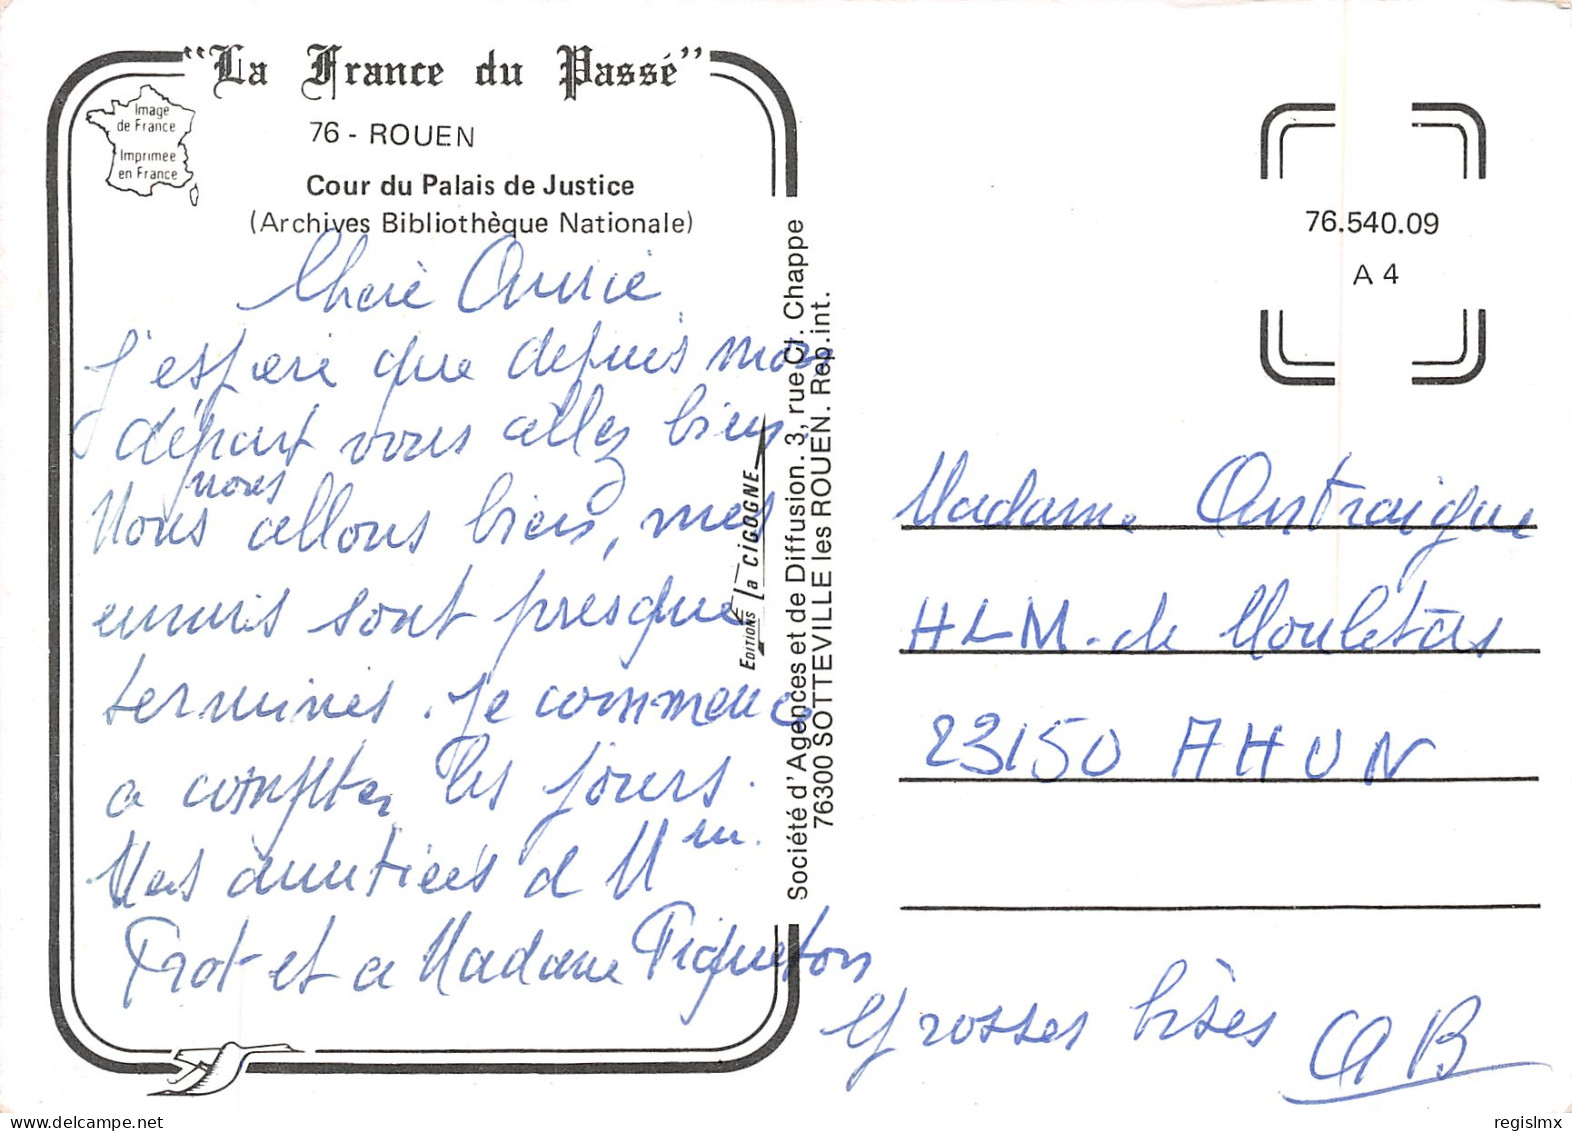 "La France du Passé"
Image
de France
Imprimée
en France
76 - ROUEN
Cour du Palais de Justice
(Archives Bibliothèque Nationale)
Chère Annie
J'espère que depuis mon
départ vous allez bien.
nous
Nous allons bien, mes
ennuis sont presque
terminés. Je commence
a compter les jours.
Mes amitiées a Mme
Trot et a Madame Piqueton
Grosses bises
AB
EDITIONS la CIGOGNE
Société d'Agences et de Diffusion. 3, rue Cl. Chappe
76300 SOTTEVILLE les ROUEN. Rep. int.
76.540.09
A 4
Madame Antraigue
HLM. de Mouletas
23150 AHUN
regislmx